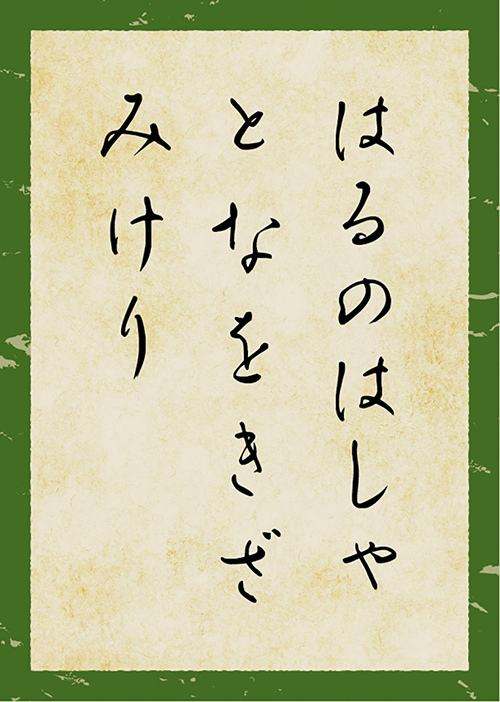 はるのはしや
となをきざ
みけり